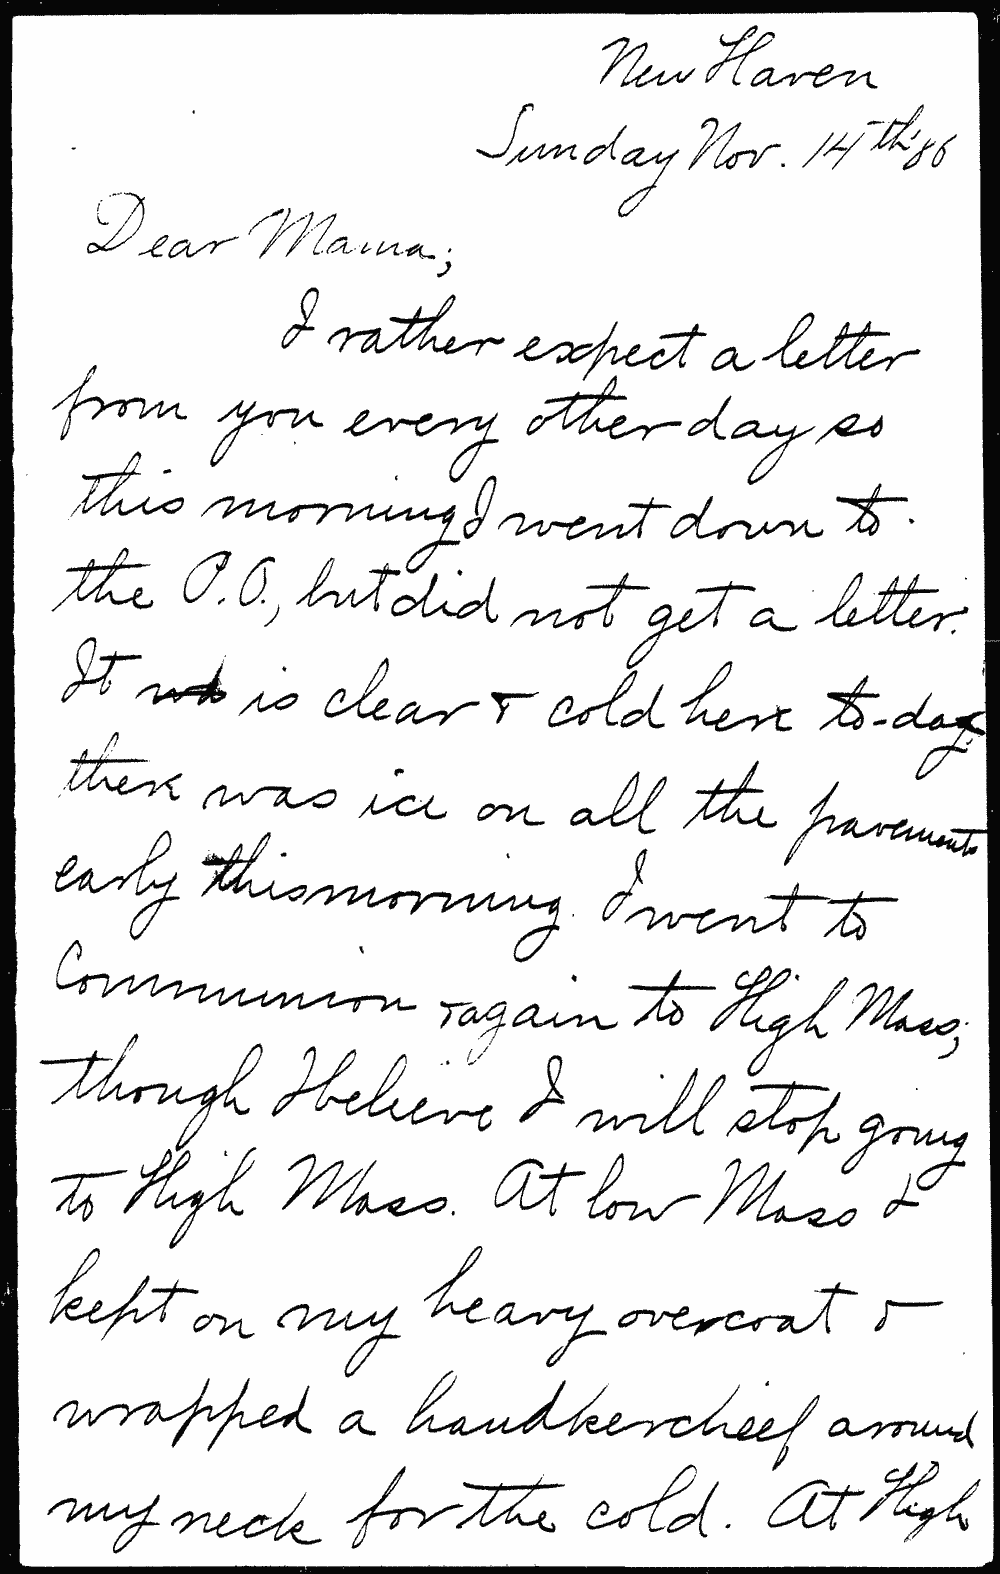 New Haven
Sunday Nov. 14th '86
Dear Mama;
I rather expect a letter
from you every other day so
this morning I went down to
the P.O., but did not get a letter.
It is clear & cold here to-day;
there was ice on all the pavements
early this morning. I went to
Communion & again to High Mass;
though I believe I will stop going
to High Mass. At low Mass I
kept on my heavy overcoat &
wrapped a handkercheef around
my neck for the cold. At High